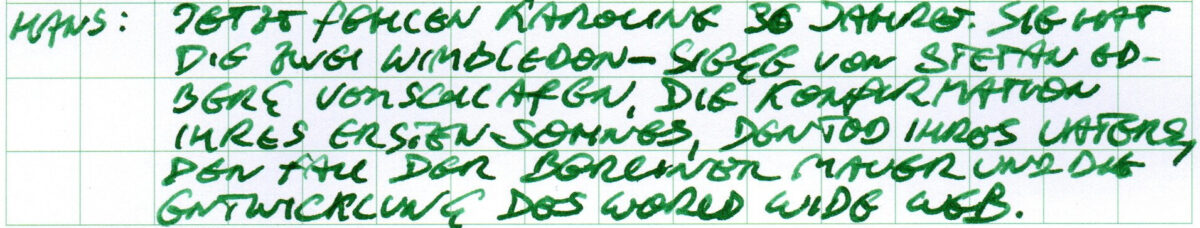 HANS: JETZT FEHLEN KAROLINE 36 JAHRE. SIE HAT
DIE ZWEI WIMBLEDON-SIEGE VON STEFAN ED-
BERG VERSCHLAFEN, DIE KONFIRMATION
IHRES ERSTEN SOHNES, DEN TOD IHRES VATERS,
DEN FALL DER BERLINER MAUER UND DIE
ENTWICKLUNG DES WORLD WIDE WEB.